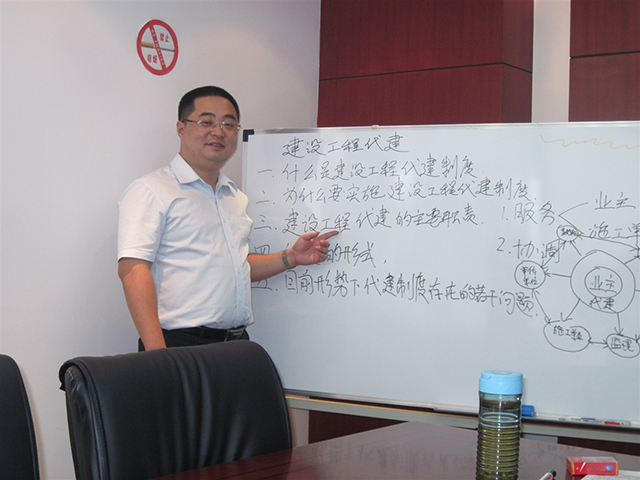 建设工程代建
一. 什么是建设工程代建制度
二. 为什么要实施建设工程代建制度
三. 建设工程代建的主要职责
四 的形式
五. 目前形势下代建制度存在的若干问题
1. 服务
2. 协调
业主
施工
业主
代建
施工
监理